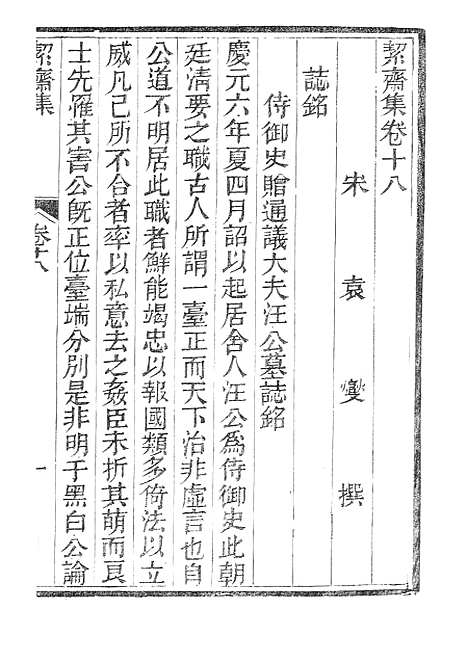 絜齋集卷十八
宋袁燮撰
誌銘
侍御史贈通議大夫汪公墓誌銘
慶元六年夏四月詔以起居舍人汪公爲侍御史此朝
廷清要之職古人所謂一臺正而天下治非虛言也自
公道不明居此職者鮮能竭忠以報國類多倚法以立
威凡己所不合者率以私意去之姦臣未折其萌而良
士先罹其害公旣正位臺端分別是非明于黑白公論
絜齋集
卷十八
一